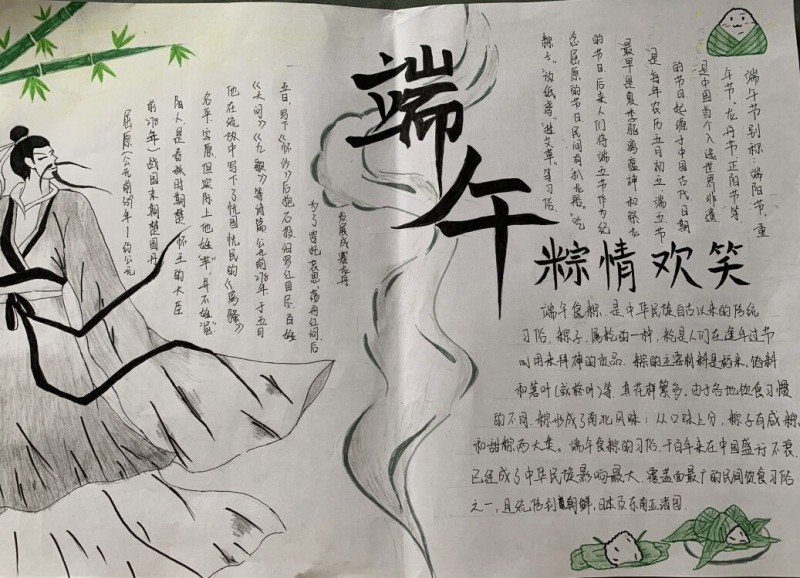 端午
粽情欢笑
端午节别称：端阳节、重
午节、龙舟节、正阳节等
是中国首个入选世界非遗
的节日起源于中国古代日期
是每年农历五月初五端五节
最早是夏季驱离瘟神和祭龙
的节日，后来人们将端五节作为纪
念屈原的节日民间有扒龙船、"吃
粽子"放纸鸢、艾草、等习俗
端午食粽，是中华民族自古以来的传统
习俗，粽子，属粽的一种，粽是人们在逢年过节
时用来拜神的贡品。粽的主要材料是糯米，馅料
和箬叶(或柊叶)等，其花样繁多，由于各地饮食习惯
的不同，粽形成了南北风味：从口味上分，粽子有咸粽
和甜粽两大类。端午食粽的习俗，千百年来在中国盛行不衰
已经成了中华民族影响最大、覆盖面最广的民间饮食习俗
之一，且流传到朝鲜，日本及东南亚诸国。
屈原(公元前339年—约公元
前278年)战国末期楚国丹
阳人，是春秋时期楚怀王的大臣
名平，字原，但实际上他姓"芈"，并不姓"屈"
他在流放中写下了忧国忧民的《离骚》
《天问》《九歌》等诗篇公元前278年，于五月
五日，写下《怀沙》后抱石投汨罗江自尽，百姓
为了寄托哀思，荡舟江河后
发展成赛龙舟